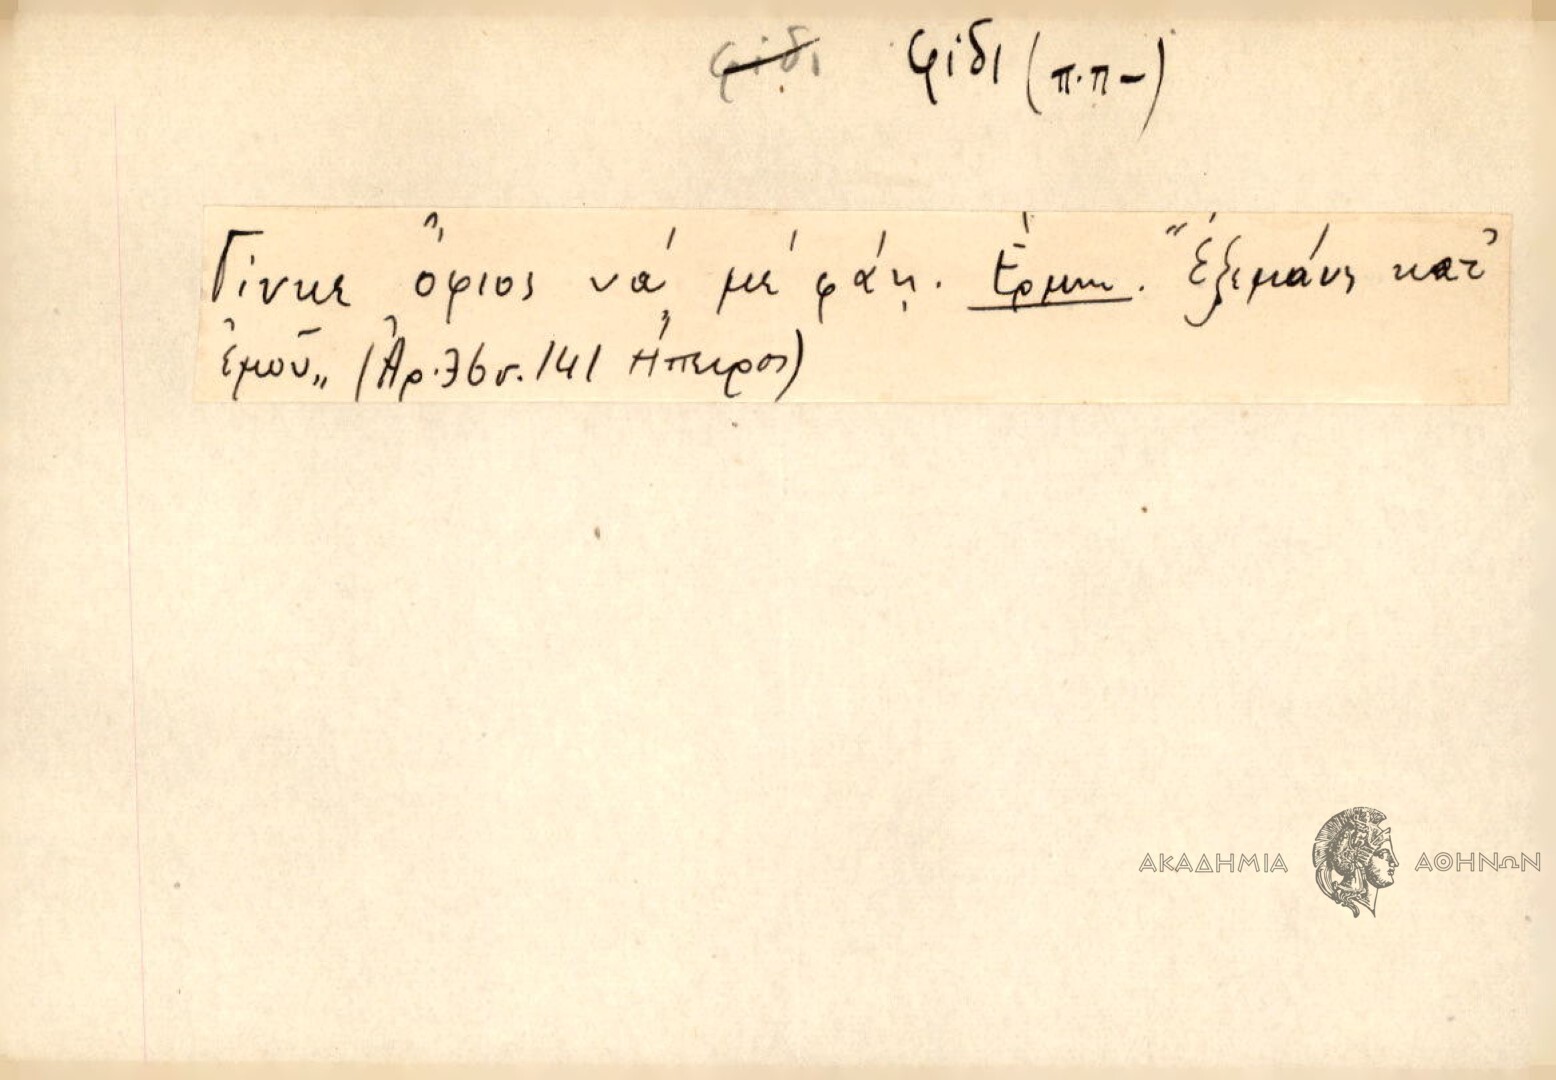 φίδι φίδι (π.π-)
Γίνκε ὄφιος νά μέ φάῃ. Ἑρμην. "ἐξεμάνη κατ'
ἐμοῦ„ (Ἀρ. 36 σ. 141 Ἤπειρος)
ΑΚΑΔΗΜΙΑ ΑΘΗΝΩΝ